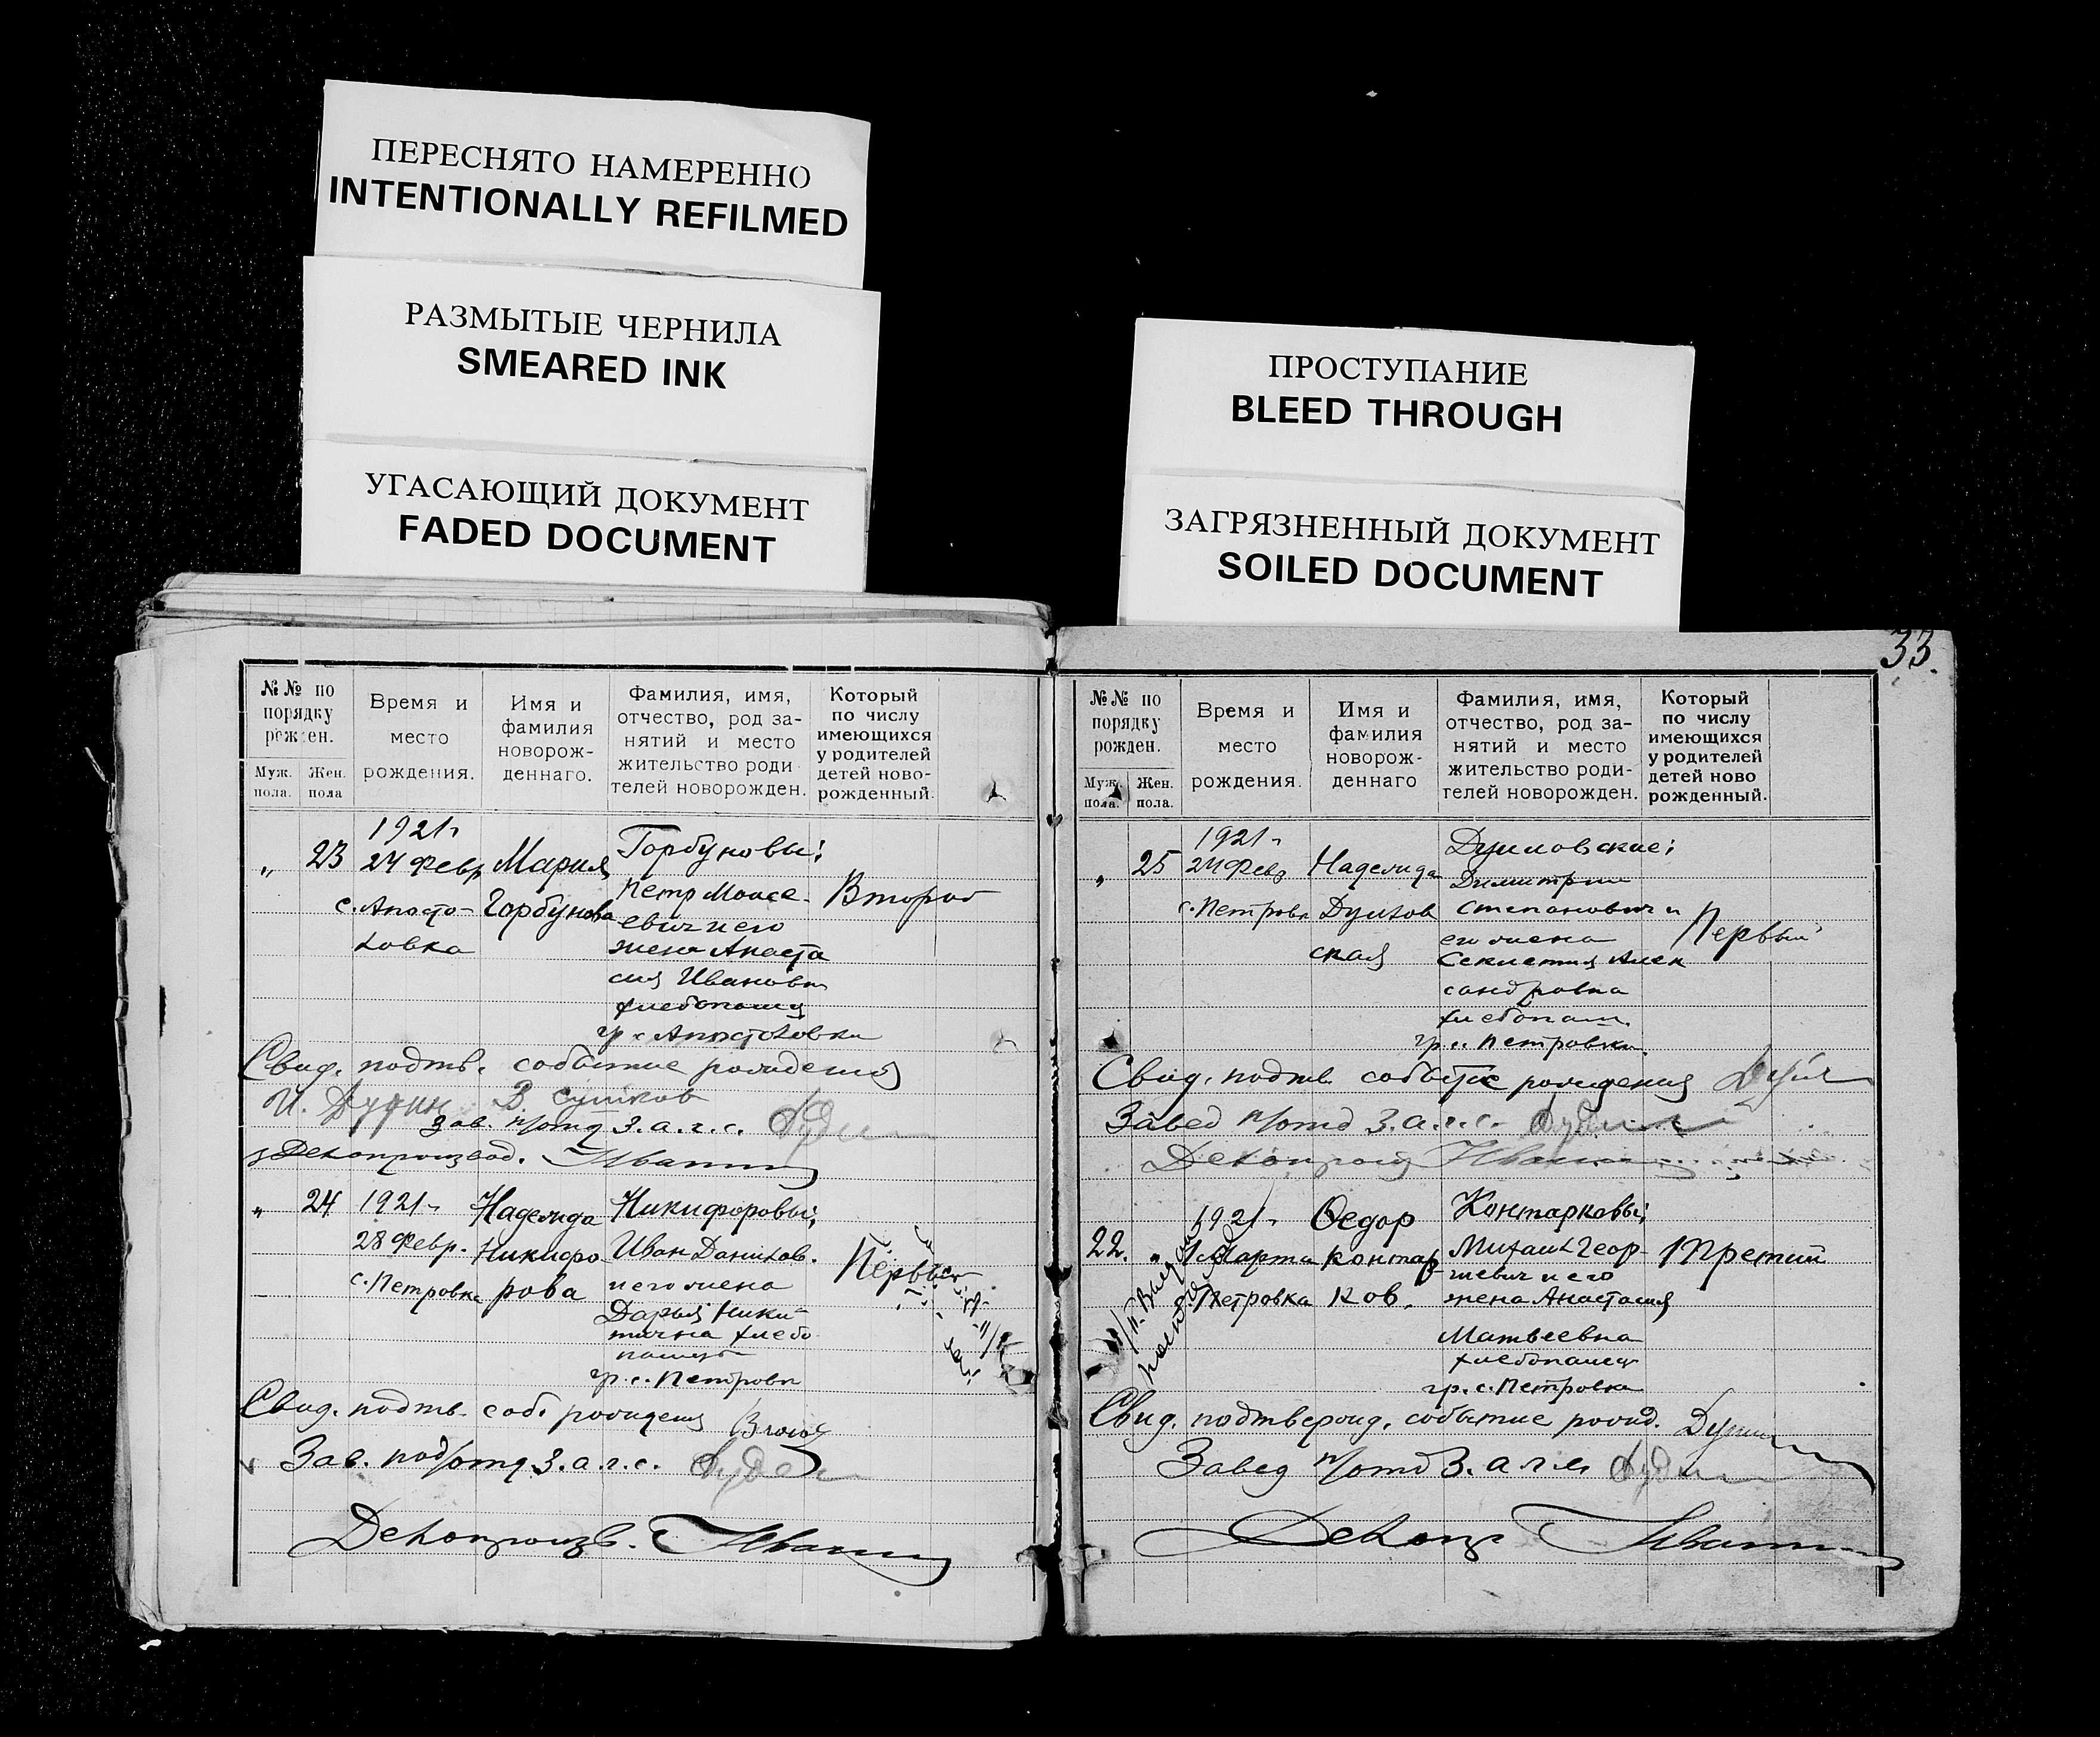 ПЕРЕСНЯТО НАМЕРЕННО
INTENTIONALLY REFILMED
РАЗМЫТЫЕ ЧЕРНИЛА
SMEARED INK
УГАСАЮЩИЙ ДОКУМЕНТ
FADED DOCUMENT
ПРОСТУПАНИЕ
BLEED THROUGH
ЗАГРЯЗНЕННЫЙ ДОКУМЕНТ
SOILED DOCUMENT
№№ по
порядку
рожден.
Муж.
пола.
Жен.
пола
Время и
место
рождения.
Имя и
фамилия
новорож-
деннаго.
Фамилия, имя,
отчество, род за-
нятий и место
жительство роди
телей новорожден.
Который
по числу
имеющихся
у родителей
детей ново-
рожденный.
„ 23
1921 г
24 Февр
с. Апосто-
ловка
Мария
Горбунова
Горбуновы;
Петр Моисе-
евич и его
жена Анаста
сия Ивановн
хлебопашц
гр с Апостоловки
Второй
Свид. подтв. событие рождения
И. Дудин В Сушков
Зав. п/отд З.а.г.с.
Делопроизвод.
„ 24
1921 г
28 Февр.
с. Петровка
Надежда
Никифо
рова
Никифоровы;
Иван Данилов.
и его жена
Дарья Ники-
тична хлебо
гр. с. Петровки
Первый
Свид. подтв. соб. рождения
Зав. под/отд З.а.г.с.
Делопроизв.
33.
№№ по
порядку
рожден.
Муж.
пола.
Жен.
пола.
Время и
место
рождения.
Имя и
фамилия
новорож-
деннаго
Фамилия, имя,
отчество, род за-
нятий и место
жительство роди-
телей новорожден.
Который
по числу
имеющихся
у родителей
детей ново
рожденный.
„ 25
1921 г
24 Февр
с. Петровк
Надежда
ская
Димитрии
Степанович и
его жена
Алек
сандровна
хлебопаш.
гр. с. Петровки.
Первый
Свид. подтв. событие рождения
Завед п/отд З.а.г.с.
22. „
1921 г
1 Марта
Петровка
Федор
Контар
ков.
Контарковы;
Михаил Геор-
гиевич и его
жена Анастасия
Матвеевна
хлебопашец
гр. с. Петровка
Третий
Свид. подтвержд. событие рожд.
Завед п/отд З.а.г.с.
Делопр